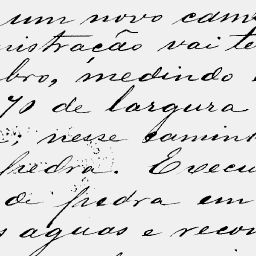 um novo cam
nistração vai te
bro, medindo
70 de largura
nesse camin
pedra. Execu
de pedra em
s aguas e recon